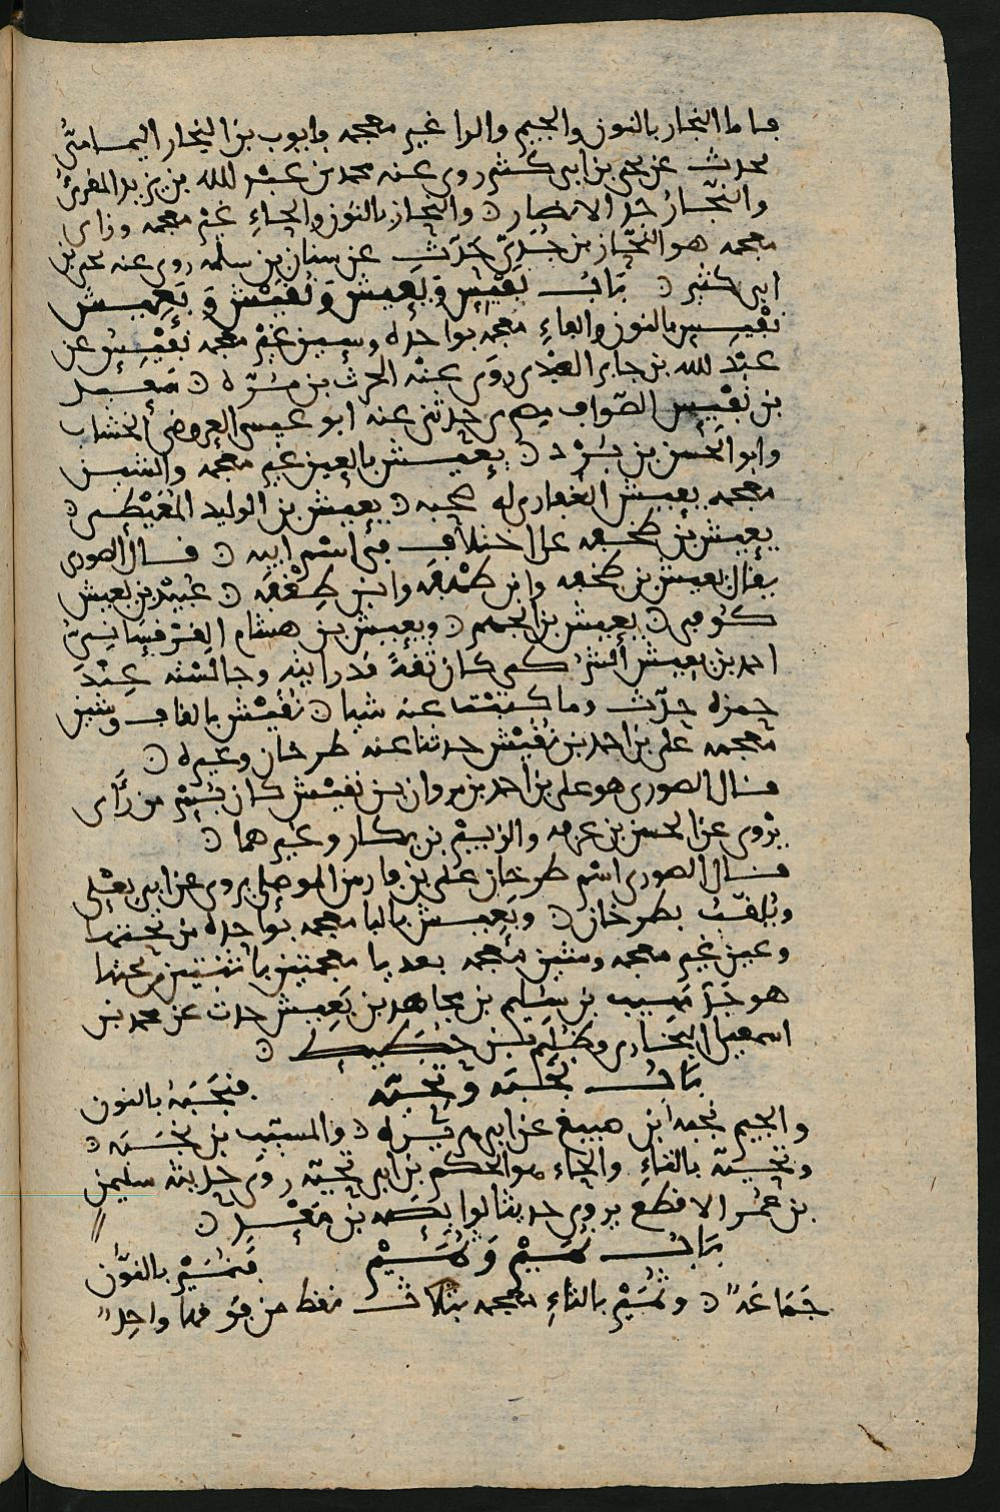 فاما النجار بالنون والجيم والرا غير معجمه فايوب بن النجار اليمامىُّ
يحدث عن يحيى بن ابى كثير روى عنه محمد بن عبد الله بن يزيد المقرئ
والنجّار جد الانصار ن والنحاز بالنون والحاءِ غير معجمه وزاى
معجمه هو النحّاز بن جُدَىّ حدّث عن سنان بن سلمه روى عنه يحيى بن
ابى كثير ن بَابُ نفيس وَيعيش وَنقيش وَبَعيش
نفيس بالنون والفاءِ معجمه بواحده وسين غير معجمه نُفَيْس عن
عبْد الله بن جابر العبْدى روى عنْه الحرث بن مُرّه ن محمد
بن نفيس الصّواف مصرى حدثنى عنه ابو عيسى العروضى الخشاب
وابو الحسن بن بُرْد ن يعيش بالعين غير معجمه والشين
معجمه يعيش الغفارى له صحبه ن يعيش بن الوليد المُعَيْطى ن
يعيش بن طخفه على اختلافٍ فى اسْم ابيه ن قال الصورى
يقال يعيش بن طخفه وابن طهْفه وابن طِغْفَه ن عُبَيْد بن يعيش
كوفى ن يعيش بن الجهم ن ويعيش بن هشام القرقسانىّ
احمد بن يعيش كان ثقةً قد رايته وجالسْته عِنْدَ
حمزه حدّث وما كتبْت عنه شيا ن نُقَيْش بالقاف وشين
معجمه على بن احمد بن نُقَيْش حدثنا عنه طرخان وغيره ن
قال الصورى هو على بن احمد بن مروان بن نقيش كان بسُرّ من رَّأى
يرْوى عن الحسن بن عرفه والزبير بن بكار وغيرهما ن
قال الصورى اسْم طرخان على بن الموصلى يروى عن ابى يعْلى
ويُلقّب بطرخان ن وبَعيش بالبا معجمه بواحده من تحتها
وعين غير معجمه وشين معجمه بعد يا معجمتين باثنتين من تحتها
هو جَدّ بن سُليم بن مجاهد بن بَعِيش حدث عن محمد بن
اسمعيل البخارى
بَابُ نَجَبَه وَتحيّه فنَجَبَهُ بالنون
والجيم نجبه ابن صبيغ عن ابى هريْره ن والمسيّب بن نجَبَه ن
وتحيّة بالتاءِ والحاء هو الحكم بن ابى تحيّه روى حديثه سليمن
بن عُمَر الاقطع يروى حديثا بن مَعْبَد ن
بَابُ نُسَيْر وَتُسَيْر فنُسَيْر بالنوْن
جَمَاعَه ن بالثاءِ معجمه بثلاث نقط من فوقها واحِد